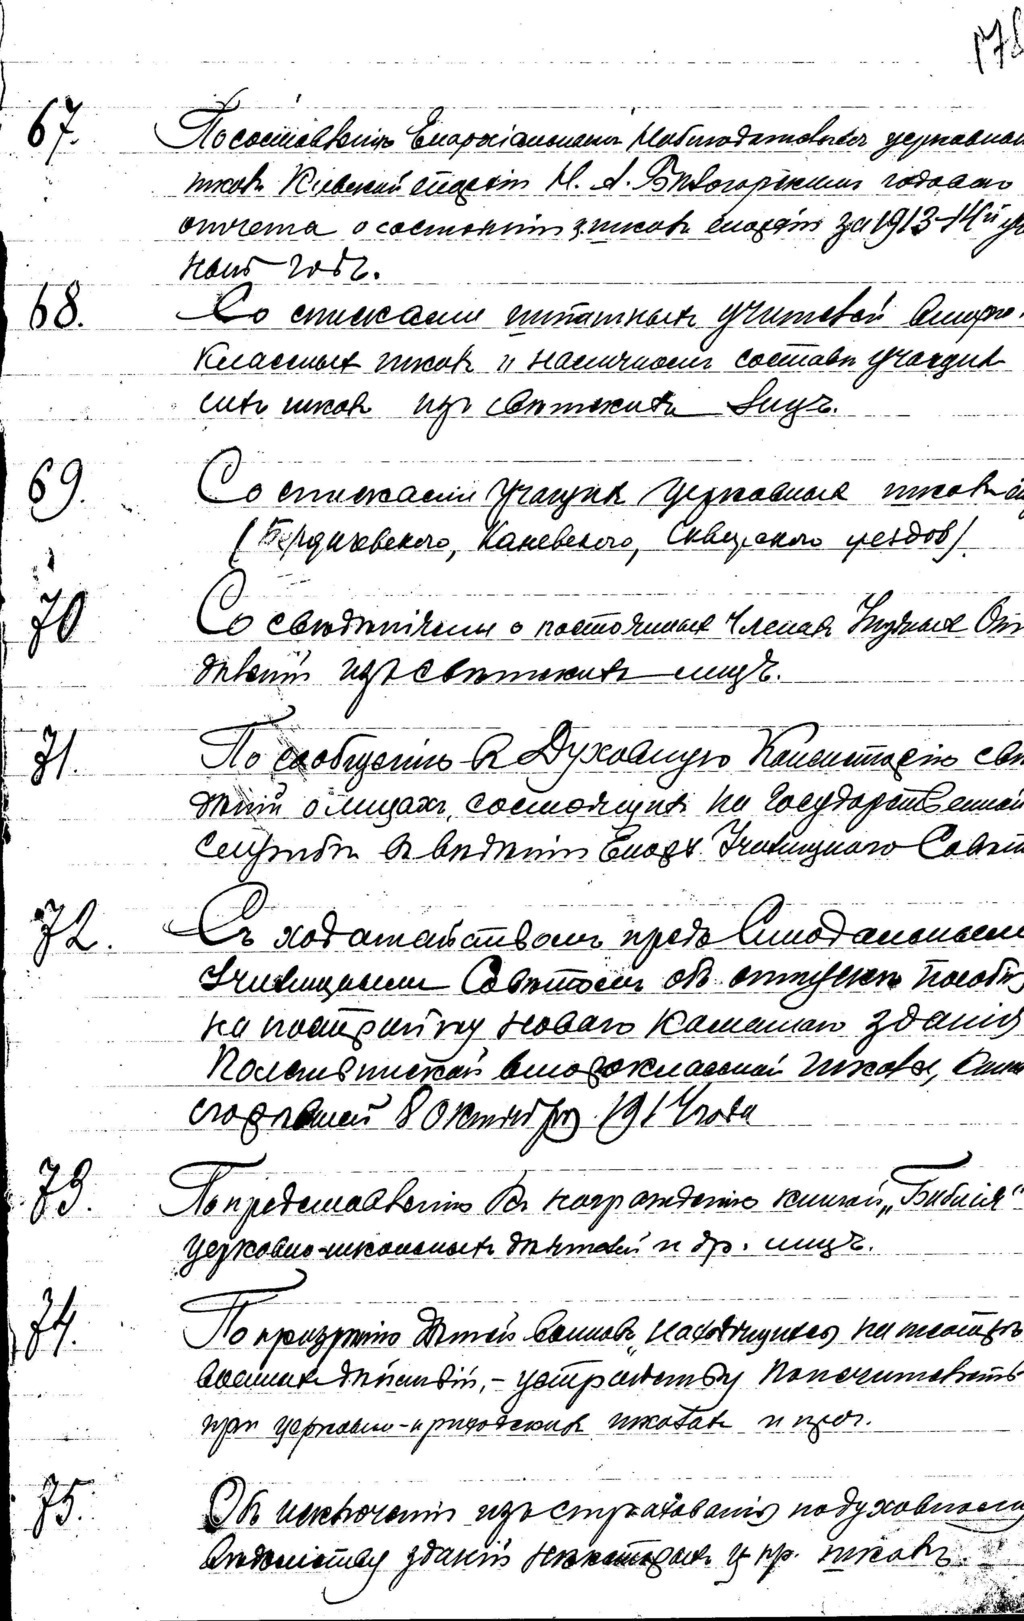 178
67. По составленiю Епархiальнымъ Наблюдателемъ церковныхъ
школъ Кiевской епархiи Н. А. Бѣлогорскимъ годового
отчета о состоянiи ц. школъ епархiи за 1913-14й уч
ный годъ.
68. Со списками штатныхъ учителей второ-
классныхъ школъ и наличномъ составѣ учащихъ
сихъ школъ изъ свѣтскихъ лицъ.
69. Со списками учащихъ церковныхъ школъ
(Бердичевскаго, Каневскаго, Сквирскаго уездов)
70 Со свѣдѣнiями о постоянныхъ членахъ Уѣздныхъ От
дѣленiй изъ свѣтскихъ лицъ.
71. По сообщенiю въ Духовную Консисторiю свѣ
дѣнiй о лицахъ, состоящихъ на Государственной
службѣ въ вѣдѣнiи Епарх. Училищнаго Совѣта
72. Съ ходатайствомъ предъ Синодальнымъ
Училищнымъ Совѣтомъ объ отпускѣ пособiя
на постройку новаго каменнаго зданiя
второклассной школы,
сгорѣвшей 8 октября 1914 года
73. По представленiю къ награжденiю книгой „Библiя“
церковно-школьныхъ дѣятелей и др. лицъ.
74. По призрѣнiю дѣтей воиновъ, находящихся на театрѣ
военныхъ дѣйствiй, - устройству Попечительствъ
при церковно-приходскихъ школахъ и проч.
75. Объ исключенiи изъ страхованiя по духовному
вѣдомству зданiй некоторыхъ ц. пр. школъ.